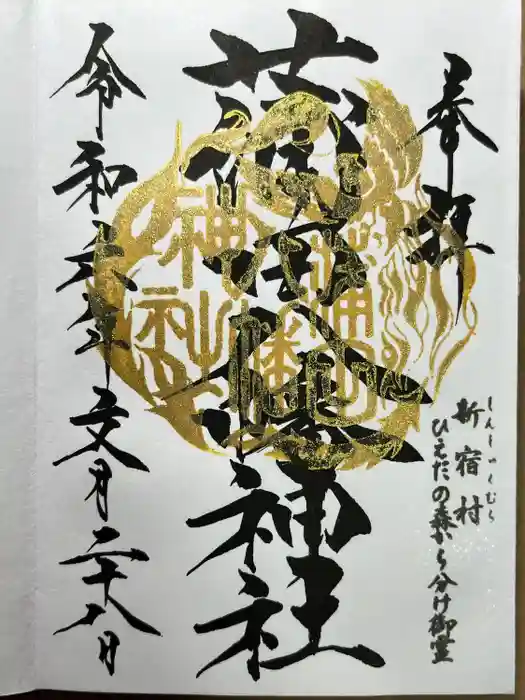 奉拝
しんしゅくむら
新宿村
ひえだの森から分け御霊
蒲田八幡神社
蒲田
八幡
神社
令和六年文月二十八日